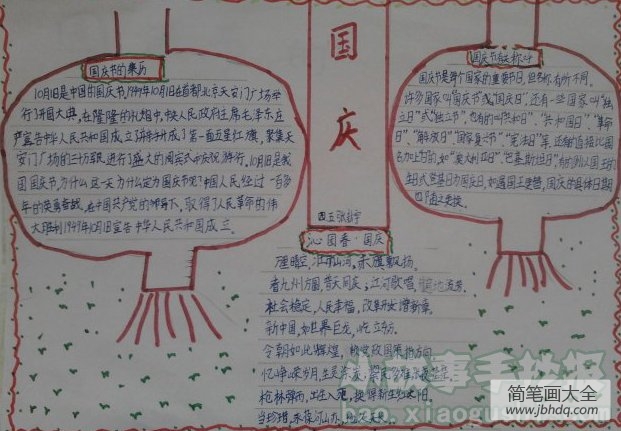 国庆
国庆节的来历
10月1日是中国的国庆节,1949年10月1日在首都北京天安门广场举
行了开国大典,在隆隆的礼炮中,中央人民政府主席毛泽东庄
严宣告中华人民共和国成立,并升了第一面五星红旗,聚集天
安门广场的三十万军民进行了盛大的阅兵式和庆祝游行。10月1日是我
国国庆节,为什么这一天为什么定为国庆节呢?中国人民经过一百多
年的英勇奋战,在中国共产党的领导下,取得了人民革命的伟
大胜利1949年10月1日宣告中华人民共和国成立。
国庆节有关称呼
国庆节是每个国家的重要节日,但名称有所不同。
许多国家叫"国庆节"或"国庆日",还有一些国家叫"独
立日"或"独立节",也有的叫"共和日"、"共和国日"、"革命
日"、"解放日""国家复兴节"、"宪法日"等,还有的直接以国
名加上"日"的,如"澳大利亚日"、"巴基斯坦日",有的以国王的
生日或登基日为国庆日,如遇国王更替,国庆的具体日期
也随之更换。
四五张
沁园春·国庆
江山河,赤旗飘扬。
看九州方圆,普天同庆;江河歌唱,
社会稳定,人民幸福,改革开放谱新章。
新中国,如世界巨龙,屹立东方。
今朝如此辉煌,
忆峥嵘岁月,
枪林弹雨,出生入死,换得新生
当珍惜,
小故事手抄报
bao.xiaogushi.com
简笔画大全
www.jbhdq.com